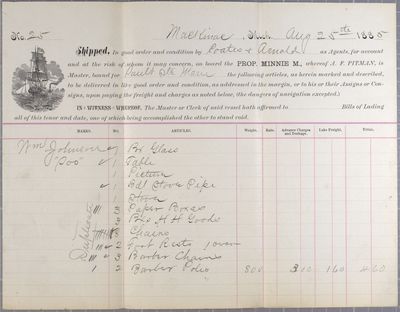 No. 25 Mackinac, Mich. Aug 25th 1885
Shipped, In good order and condition by Coates & Arnold as Agents, for account
and at the risk of whom it may concern, on board the PROP. MINNIE M., whereof A. F. PITMAN, is
Master, bound for Sault Ste Marie the following articles, as herein marked and described,
to be delivered in like good order and condition, as addressed in the margin, or to his or their Assigns or Con-
signs, upon paying the freight and charges as noted below, (the dangers of navigation excepted.)
IN WITNESS WHEREOF, The Master or Clerk of said vessel hath affirmed to Bills of Lading
all of this tenor and date, one of which being accomplished the other to stand void.
MARKS. NO. ARTICLES. Weight. Rate. Advance Charges and Dockage. Lake Freight. TOTAL.
Wm Johnson Box Glass
"Soo" 1 Table
1 Picture
1 Bdl Stove Pipe
1 Stove
Paper Boxes
Duplicate Bxs H H Goods
Chairs
2 Foot Rests
3 Barber Chairs
2 Barber Poles 800 300 160 460